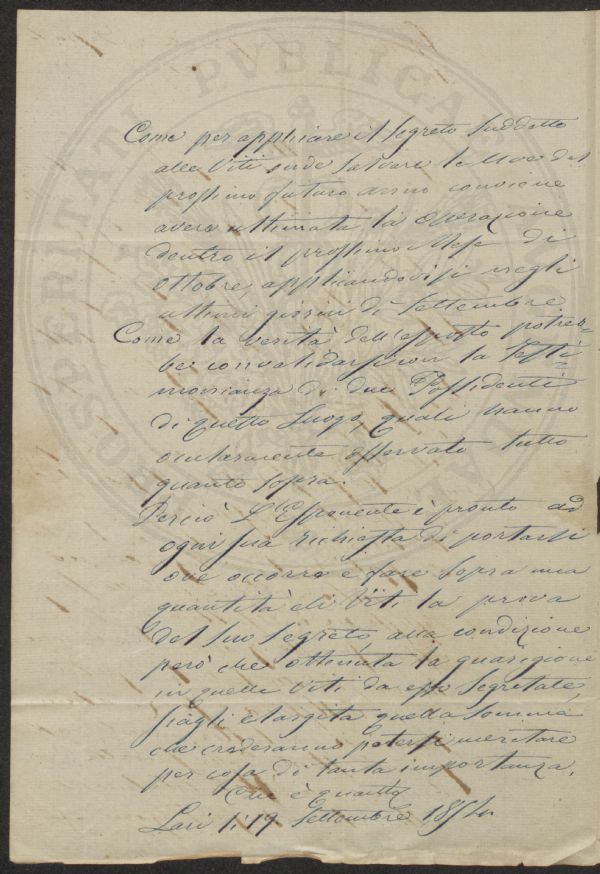 Come per applicare il segreto suddetto
alle Viti onde salvare le Uve del
prossimo futuro anno conviene
avere ultimata la Operazione
dentro il prossimo Mese di
Ottobre, applicandovisi negli
ultimi giorni di Settembre
Come la verità dell'esposto potreb-
be convalidarsi con la Testi=
monianza di due Possidenti
di questo Luogo, quali hanno
ocularmente osservato tutto
quanto sopra.
Perciò L'Esponente è pronto ad
ogni sua richiesta di portarsi
ove occorra e fare sopra una
quantità di Viti la prova
del suo segreto, alla condizione
però che ottenuta la guarigione
in quelle Viti da esso Segretate,
siagli elargita quella Somma
che crederanno potersi meritare
per cosa di tanta importanza,
Che è quanto
Lari li 19 Settembre 1854